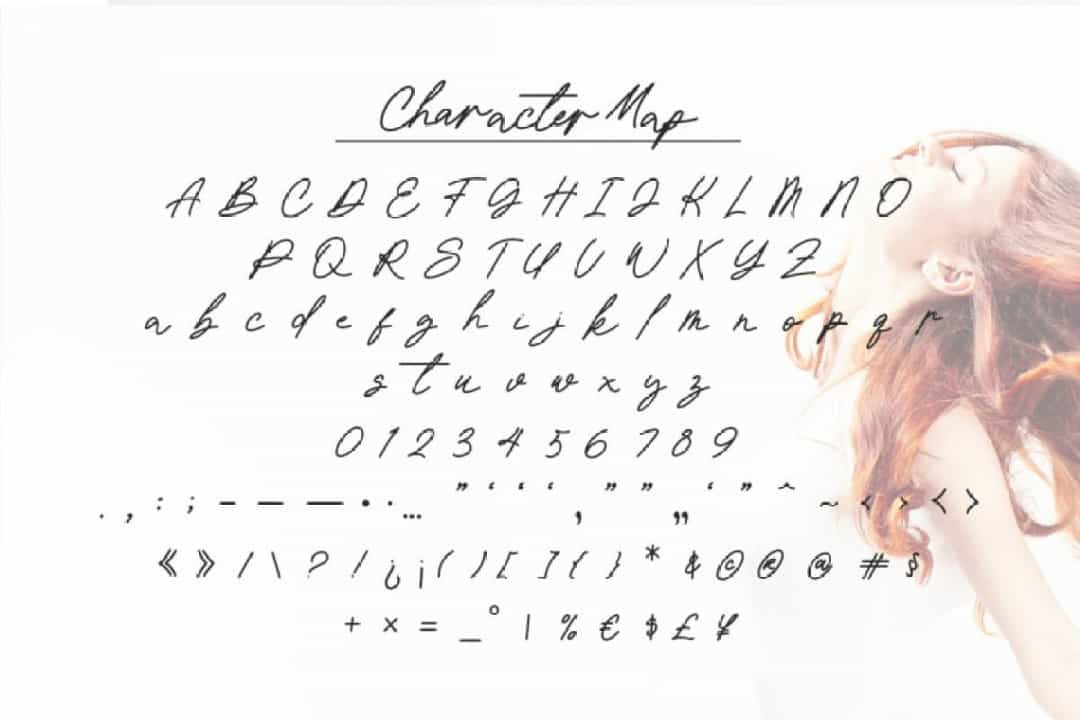 Character Map
A B C D E F G H I J K L M N O
P Q R S T U V W X Y Z
a b c d e f g h i j k l m n o p q r
s t u v w x y z
0 1 2 3 4 5 6 7 8 9
. , : ; - – — • · … " ‘ ‘ ‘ , ” ” „ ‘ ” ^ ~ < > < >
« » / \ ? ! ¿ ¡ ( ) [ ] { } * & © ® @ # §
+ × = _ ° | % € $ £ ¥